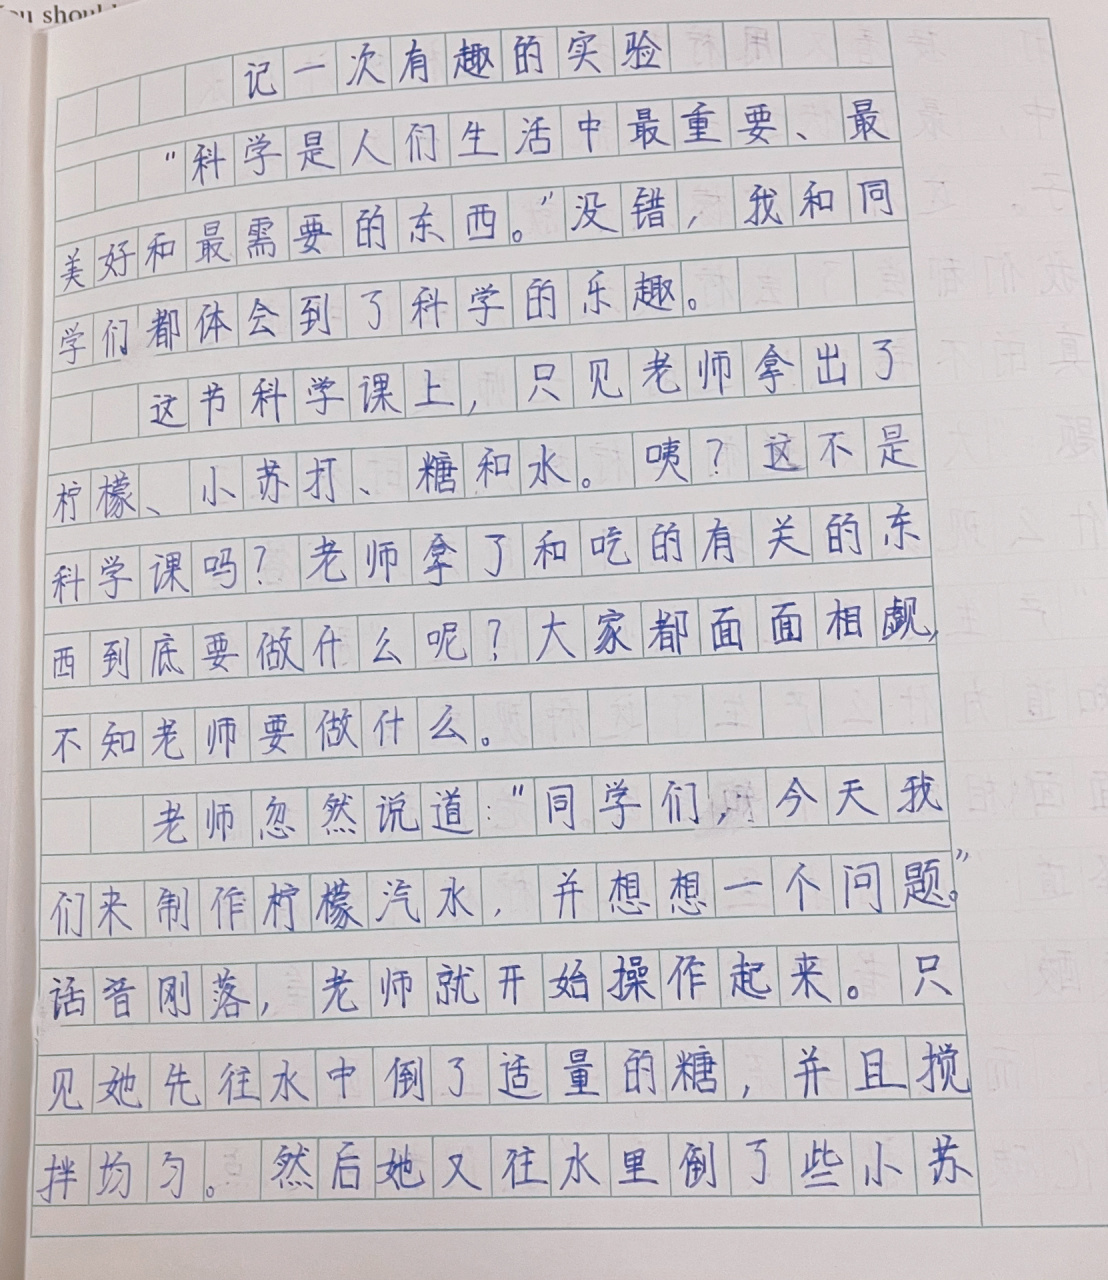 记一次有趣的实验
“科学是人们生活中最重要、最
美好和最需要的东西。”没错，我和同
学们都体会到了科学的乐趣。
这节科学课上，只见老师拿出了
柠檬、小苏打、糖和水。咦？这不是
科学课吗？老师拿了和吃的有关的东
西到底要做什么呢？大家都面面相觑，
不知老师要做什么。
老师忽然说道：“同学们，今天我
们来制作柠檬汽水，并想想一个问题。”
话音刚落，老师就开始操作起来。只
见她先往水中倒了适量的糖，并且搅
拌均匀。然后她又往水里倒了些小苏